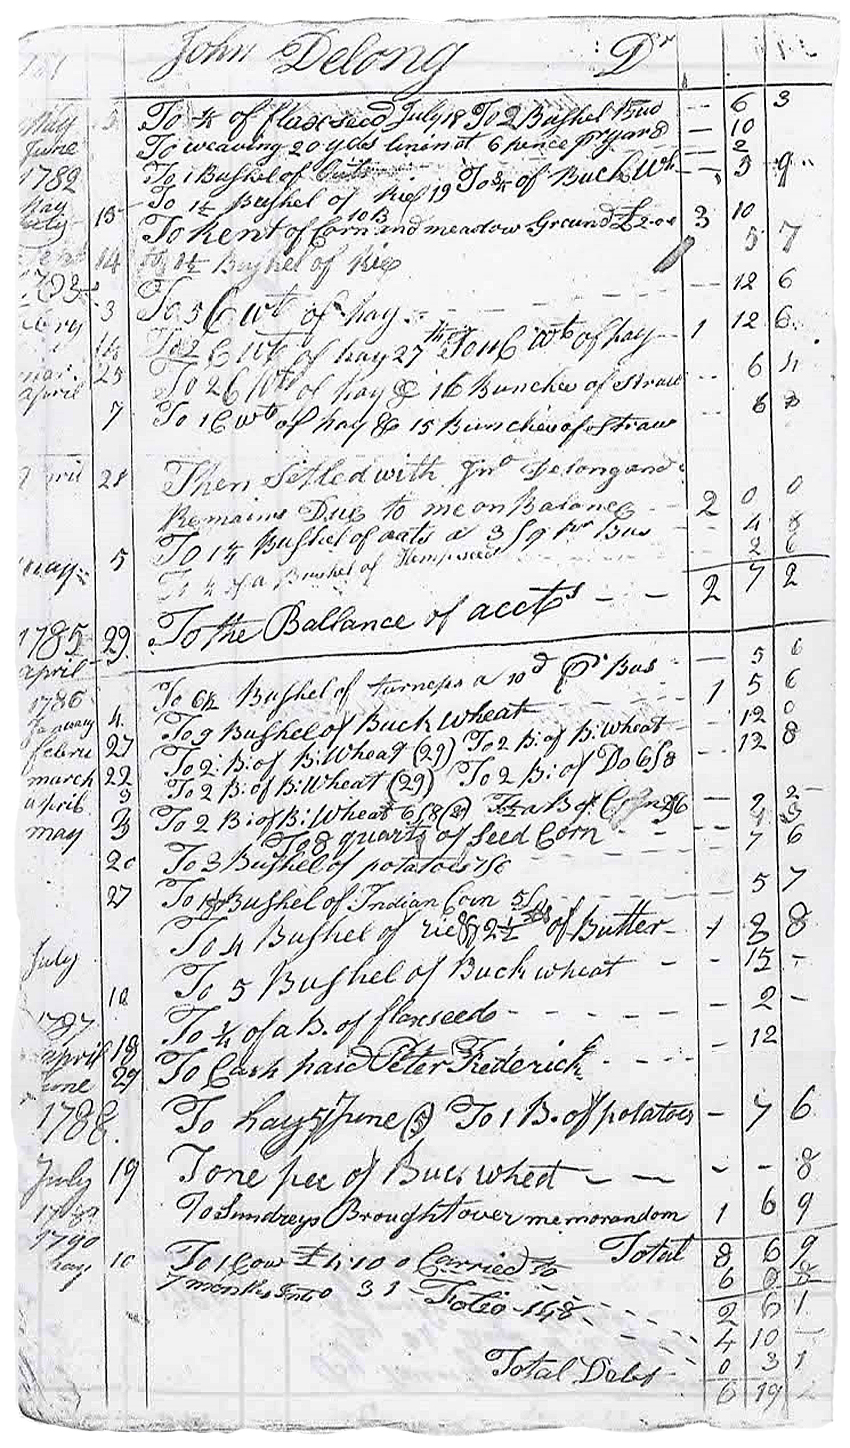 John Delong Dr
May 5 To ¼ of flaxseed July 18 To 2 Bushel — 6 3
June To weaving 20 yds linin at 6 pence pr yard — 10
1782 To 1 Bushel of — 2
To 1½ Bushel of Rie 19 To ¾ of Buck Wh. — 5 9
July 15 To Rent of Corn and meadow Ground £2.0.0 3 10
14 1½ Bushel of Rie 5 7
3 To 5 C wt of hay 12 6
To 2 C wt of hay 27th To 11 C wt of hay 1 12 6
25 To 2 C wt of hay & 16 Bunches of Straw 6 4
april 7 To 1 C wt of hay & 15 Bunches of Straw 6 8
April 28 Then Setled with Jno Delong and
Remains Due to me on Balance 2 0 0
May 5 To 1¼ Bushel of oats a 3/9 Pr Bus 4 8
To ¼ of a Bushel of Hempseed 2 6
2 7 2
1785 29 To the Ballance of accts — —
april
1786 To 6½ Bushel of turneps a 10d Pr Bus — 5 6
January 4 To 9 Bushel of Buck wheat 1 5 6
febru 27 To 2 B: of B: Wheat (29) To 2 B: of B: Wheat — 12 0
march 22 To 2 B: of B: Wheat (29) To 2 B: of Do 6/8 — 12 8
april 3 To 2 B: of B: Wheat 6/8 a B of Corn — 2 2
may 3 To 8 quarts of Seed Corn 3
20 To 3 Bushel of potatoes 7 6
27 To Bushel of Indian Corn 5 7
To 4 Bushel of rie & 2½ of Butter 1 8 8
July 10 To 5 Bushel of Buck wheat — — 15 –
1787 To ¼ of a B. of flaxseed — 2 –
april 18 To Cash paid Peter Frederick 12
June 29
1788 To hay June (5) To 1 B. of potatoes — 7 6
July 19 T one pec of Buck whet — — - - 8
To Sundreys Brought over memorandom 1 6 9
1790 Total 8 6 9
may 10 To 1 Cow £4:10 0 Carried to 6 0 8
7 months Intr 0 3 1 – Folio – 148 2 6 1
4 10 –
Total Debt 0 3 1
6 19